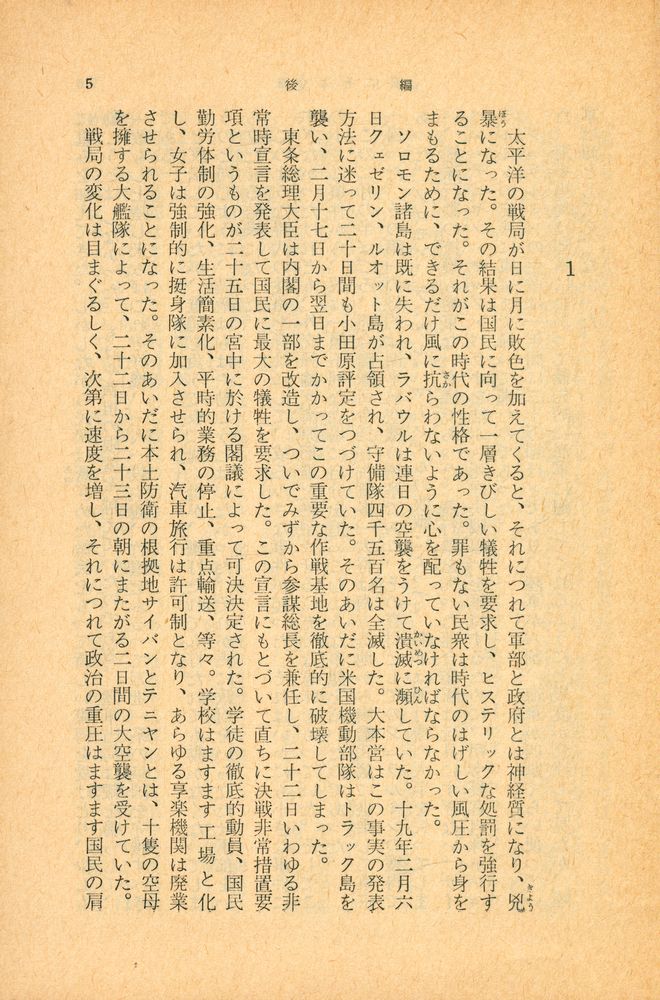 5
後編
1
太平洋の戦局が日に月に敗色を加えてくると、それにつれて軍部と政府とは神経質になり、兇
暴になった。その結果は国民に向って一層きびしい犠牲を要求し、ヒステリックな処罰を強行す
ることになった。それがこの時代の性格であった。罪もない民衆は時代のはげしい風圧から身を
まもるために、できるだけ風に抗らわないように心を配っていなければならなかった。
ソロモン諸島は既に失われ、ラバウルは連日の空襲をうけて潰滅に瀕していた。十九年二月六
日クェゼリン、ルオット島が占領され、守備隊四千五百名は全滅した。大本営はこの事実の発表
方法に迷って二十日間も小田原評定をつづけていた。そのあいだに米国機動部隊はトラック島を
襲い、二月十七日から翌日までかかってこの重要な作戦基地を徹底的に破壊してしまった。
東条総理大臣は内閣の一部を改造し、ついでみずから参謀総長を兼任し、二十二日いわゆる非
常時宣言を発表して国民に最大の犠牲を要求した。この宣言にもとづいて直ちに決戦非常措置要
項というものが二十五日の宮中に於ける閣議によって可決決定された。学徒の徹底的動員、国民
勤労体制の強化、生活簡素化、平時的業務の停止、重点輸送、等々。学校はますます工場と化
し、女子は強制的に挺身隊に加入させられ、汽車旅行は許可制となり、あらゆる享楽機関は廃業
させられることになった。そのあいだに本土防衛の根拠地サイパンとテニヤンとは、十隻の空母
を擁する大艦隊によって、二十二日から二十三日の朝にまたがる二日間の大空襲を受けていた。
戦局の変化は目まぐるしく、次第に速度を増し、それにつれて政治の重圧はますます国民の肩